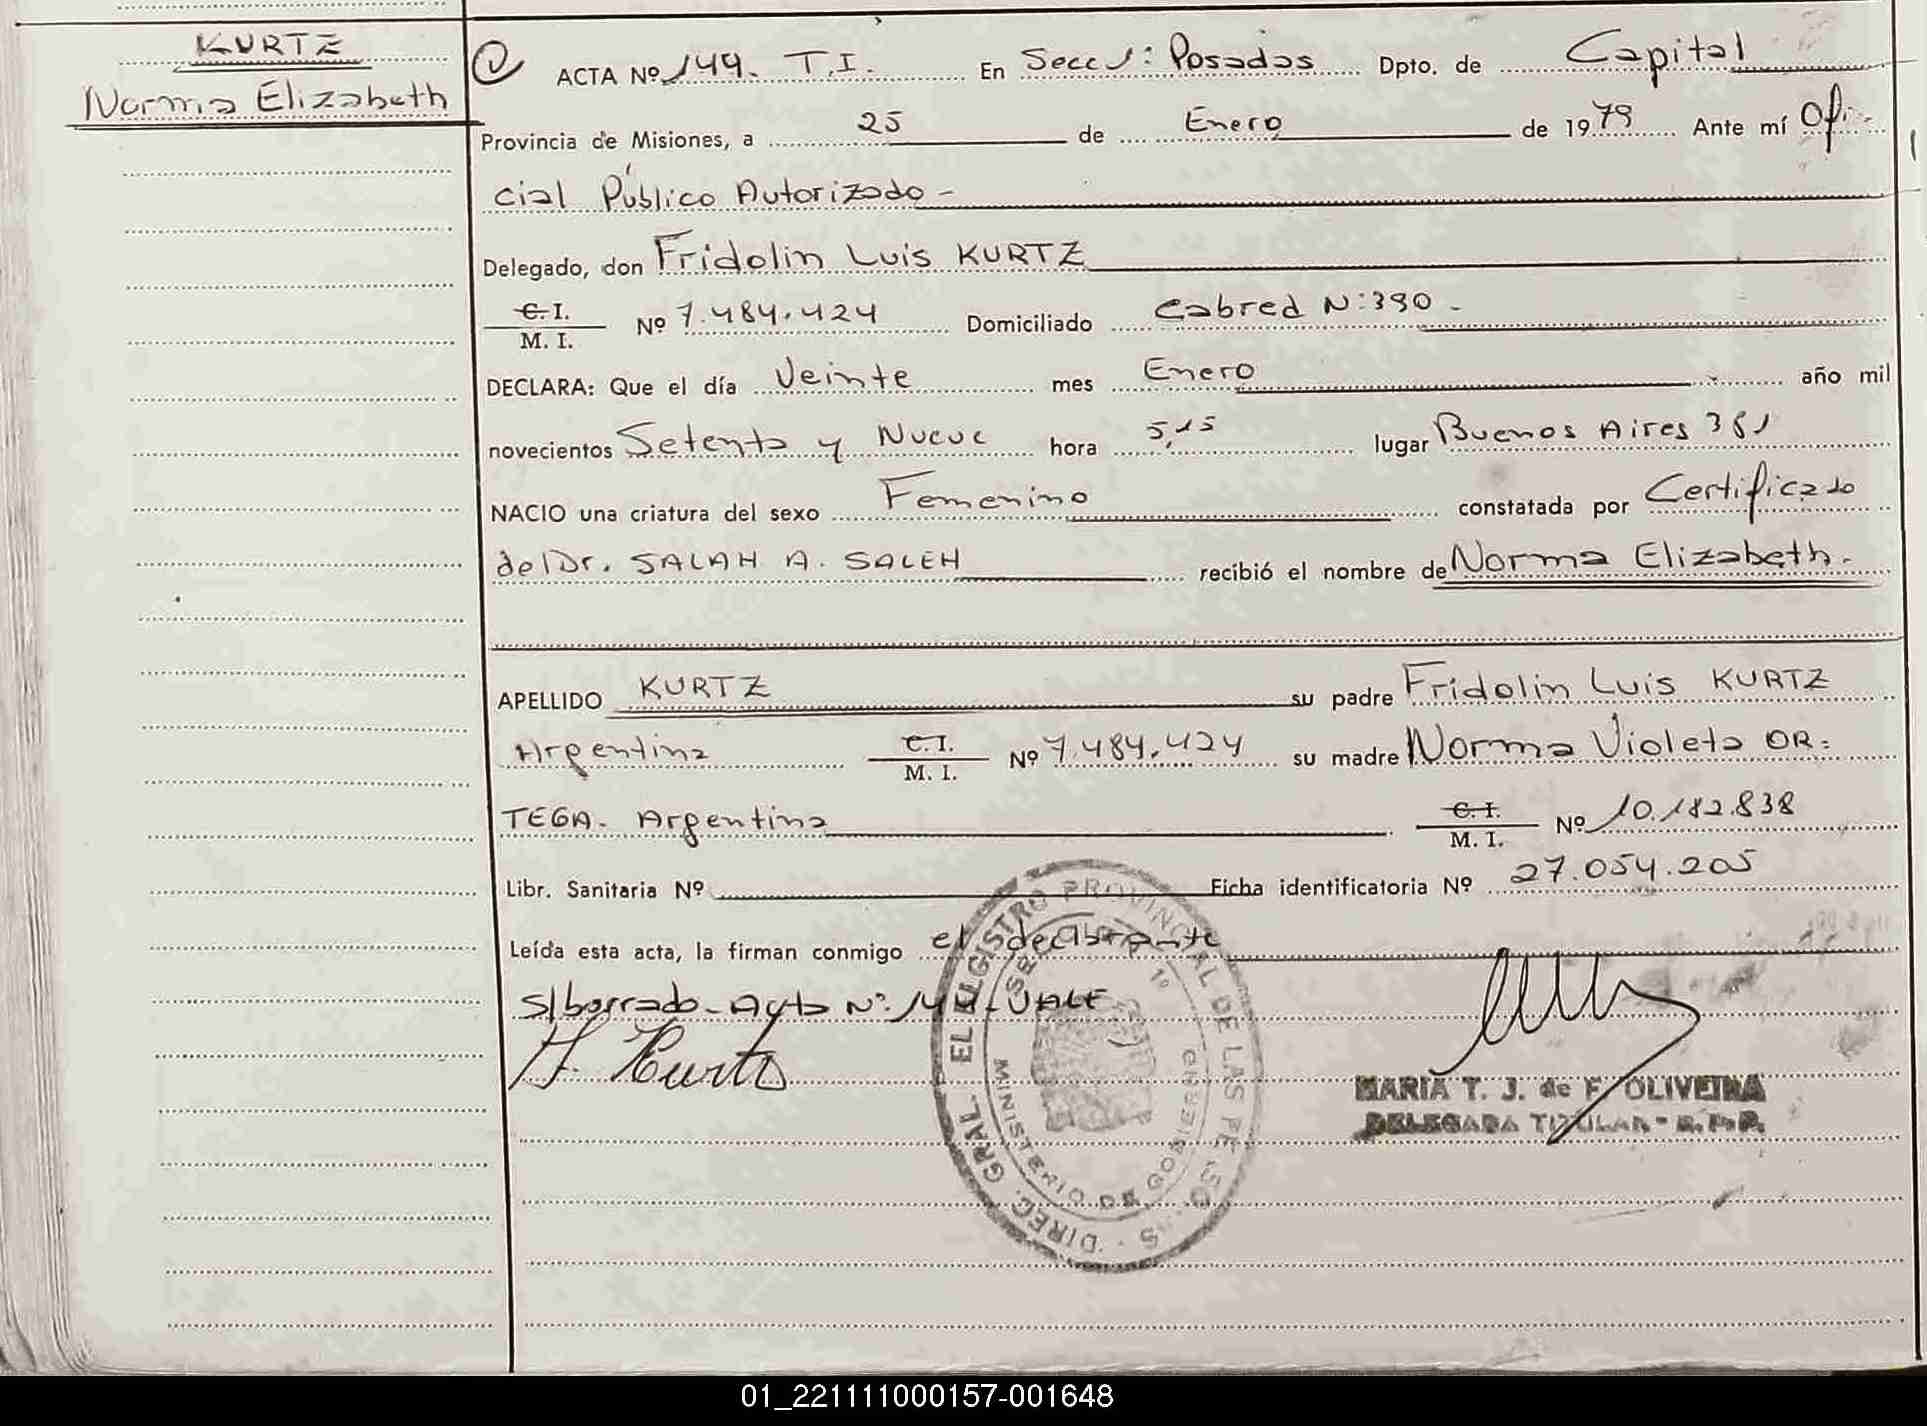 KURTZ
Norma Elizabeth
ACTA Nº 144. T.I. En Secc 1: Posadas Dpto. de Capital
Provincia de Misiones, a 25 de Enero de 1979 Ante mí Ofi-
cial Público Autorizado -
Delegado, don Fridolin Luis KURTZ
C. I.
M. I. Nº 7.484.424 Domiciliado Cabred N: 390 -
DECLARA: Que el día Veinte mes Enero año mil
novecientos Setenta y Nueve hora 5,15 lugar Buenos Aires 381
NACIO una criatura del sexo Femenino constatada por Certificado
del Dr. SALAH A. SALEH recibió el nombre de Norma Elizabeth.
APELLIDO KURTZ su padre Fridolin Luis KURTZ
Argentina C. I.
M. I. Nº 7.484.424 su madre Norma Violeta OR=
TEGA. Argentina C. I.
M. I. Nº 10.182.838
Libr. Sanitaria Nº Ficha identificatoria Nº 27.054.205
Leída esta acta, la firman conmigo el declarante
S/borrado - Acta Nº: 144 - VALE
F. Kurtz
MARIA T. J. de F. OLIVEIRA
DELEGADA TITULAR - R.P.P.
DIREC. GRAL. EL REGISTRO PROVINCIAL DE LAS PERSO S
MINISTERIO DE GOBIERNO
01_221111000157-001648